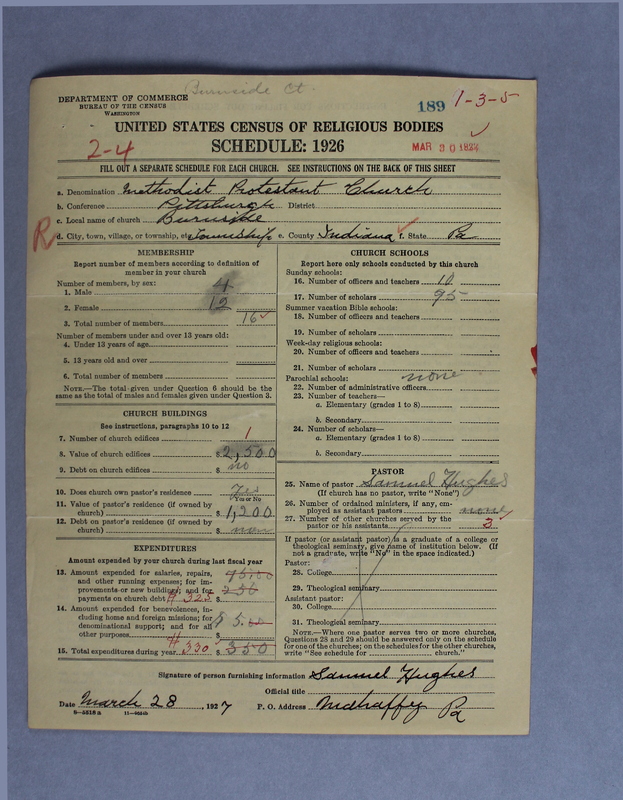 Burnside Ct.
DEPARTMENT OF COMMERCE
BUREAU OF THE CENSUS
WASHINGTON
189 1-3-5
UNITED STATES CENSUS OF RELIGIOUS BODIES
2-4 SCHEDULE: 1926 MAR 30 1927
FILL OUT A SEPARATE SCHEDULE FOR EACH CHURCH. SEE INSTRUCTIONS ON THE BACK OF THIS SHEET
a. Denomination Methodist Protestant Church
b. Conference Pittsburgh District
c. Local name of church Burnside
R d. City, town, village, or township, etc. Township e. County Indiana f. State Pa
MEMBERSHIP
Report number of members according to definition of
member in your church
Number of members, by sex:
1. Male 4
2. Female 12
3. Total number of members 16
Number of members under and over 13 years old:
4. Under 13 years of age
5. 13 years old and over
6. Total number of members
NOTE.—The total given under Question 6 should be the
same as the total of males and females given under Question 3.
CHURCH BUILDINGS
See instructions, paragraphs 10 to 12
7. Number of church edifices 1
8. Value of church edifices $2,500
9. Debt on church edifices $ no
10. Does church own pastor's residence Yes
Yes or No
11. Value of pastor's residence (if owned by
church) $ 1,200
12. Debt on pastor's residence (if owned by
church) $
EXPENDITURES
Amount expended by your church during last fiscal year
13. Amount expended for salaries, repairs,
and other running expenses; for im-
provements or new buildings; and for
payments on church debt # 325 $
14. Amount expended for benevolences, in-
cluding home and foreign missions; for
denominational support; and for all
other purposes $
15. Total expenditures during year # 330 $ 350
CHURCH SCHOOLS
Report here only schools conducted by this church
Sunday schools:
16. Number of officers and teachers 10
17. Number of scholars 95
Summer vacation Bible schools:
18. Number of officers and teachers
19. Number of scholars
Week-day religious schools:
20. Number of officers and teachers
21. Number of scholars
Parochial schools: none
22. Number of administrative officers
23. Number of teachers—
a. Elementary (grades 1 to 8)
b. Secondary
24. Number of scholars—
a. Elementary (grades 1 to 8)
b. Secondary
PASTOR
25. Name of pastor Samuel Hughes
(If church has no pastor, write "None")
26. Number of ordained ministers, if any, em-
ployed as assistant pastors none
27. Number of other churches served by the
pastor or his assistants 3
If pastor (or assistant pastor) is a graduate of a college or
theological seminary, give name of institution below. (If
not a graduate, write "No" in the space indicated.)
Pastor:
28. College
29. Theological seminary
Assistant pastor:
30. College
31. Theological seminary
NOTE.—Where one pastor serves two or more churches,
Questions 28 and 29 should be answered only on the schedule
for one of the churches; on the schedules for the other churches,
write "See schedule for church."
Signature of person furnishing information Samuel Hughes
Official title
Date March 28, 1927 P. O. Address Mahaffey Pa